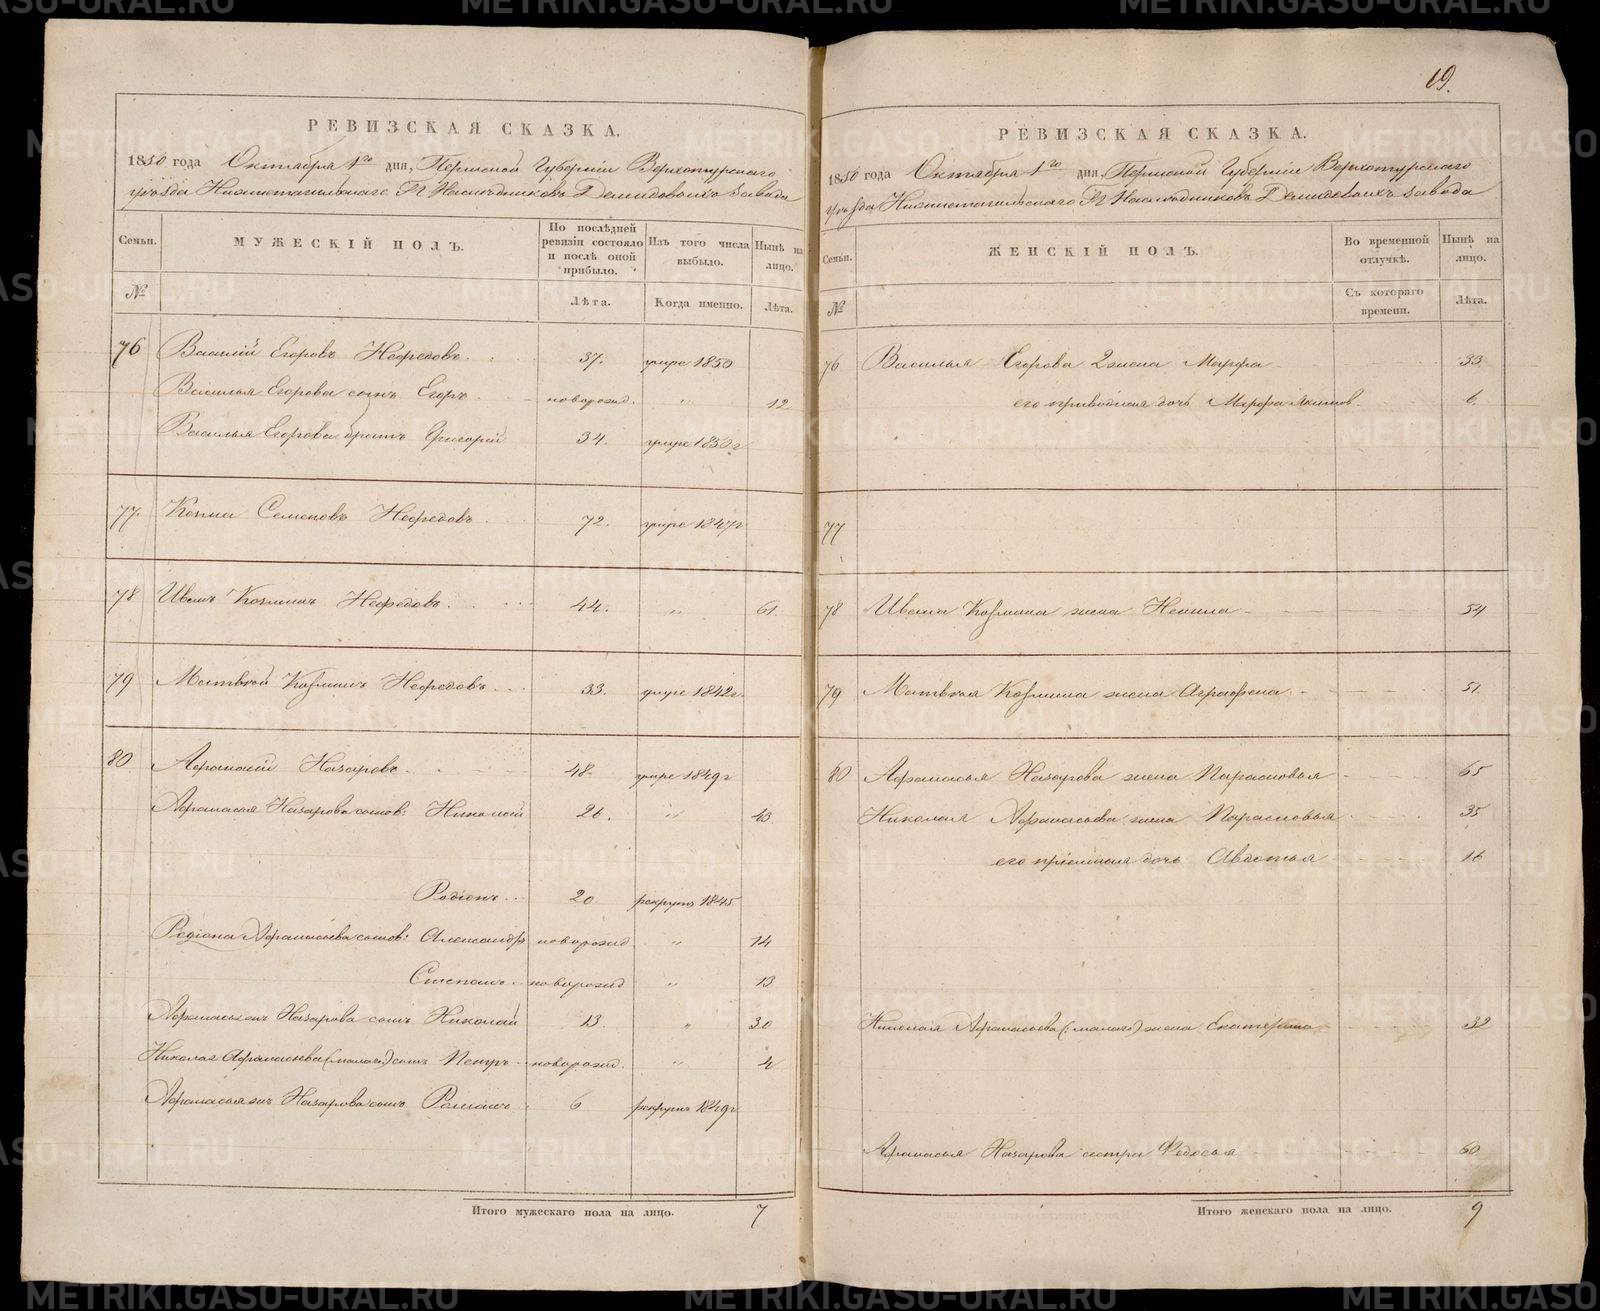 19.
РЕВИЗСКАЯ СКАЗКА.
1850 года Октября 1го дня, Пермской Губерніи Верхотурскаго
уѣзда Нижнетагильскаго Гг Наслѣдниковъ Демидовыхъ завода
Семьи. МУЖЕСКІЙ ПОЛЪ. По послѣдней ревизіи состояло и послѣ оной прибыло. Изъ того числа выбыло. Нынѣ на лицо.
№ Лѣта. Когда именно. Лѣта.
76 Василій Егоровъ Нефедовъ 37. умре 1850
Василья Егорова сынъ Егоръ новорожд. " 12
Василья Егорова братъ Григорій 34. умре 1850 г
77. Козма Семеновъ Нефедовъ 72. умре 1847 г
78 Иванъ Козминъ Нефедовъ. 44. " 61.
79 Матвѣй Козминъ Нефедовъ 33. умре 1842 г.
80 Афанасій Назаровъ 48. умре 1849 г
Афанасья Назарова сынов: Николай 26. " 43
Родіонъ 20 рекрутъ 1845
Родіона Афанасьева сынов: Александръ новорожд " 14
Степанъ новорожд " 13
Афанасья Назарова сынъ Николай 13. " 30
Николая Афанасьева (малаго) сынъ Петръ новорожд. " 4
Афанасья Назарова сынъ Романъ 6 рекрутъ 1849 г
Итого мужескаго пола на лицо. 7
РЕВИЗСКАЯ СКАЗКА.
1850 года Октября 1го дня, Пермской Губерніи Верхотурскаго
уѣзда Нижнетагильскаго Гг Наслѣдниковъ Демидовыхъ завода
Семьи. ЖЕНСКІЙ ПОЛЪ. Во временной отлучкѣ. Нынѣ на лицо.
№ Съ котораго времени. Лѣта.
76 Василья Егорова 2 жена Марфа 33
его приводная дочь Марфа Якимов. 6
77
78 Ивана Козмина жена Ненила 54
79 Матвѣя Козмина жена Аграфена 51
80 Афанасья Назарова жена Парасковья 65
Николая Афанасьева жена Парасковья 35
его пріемная дочь Авдотья 16
Николая Афанасьева (малаго) жена Екатерина 32
Афанасья Назарова сестра Федосья 60
Итого женскаго пола на лицо. 9
METRIKI.GASO-URAL.RU